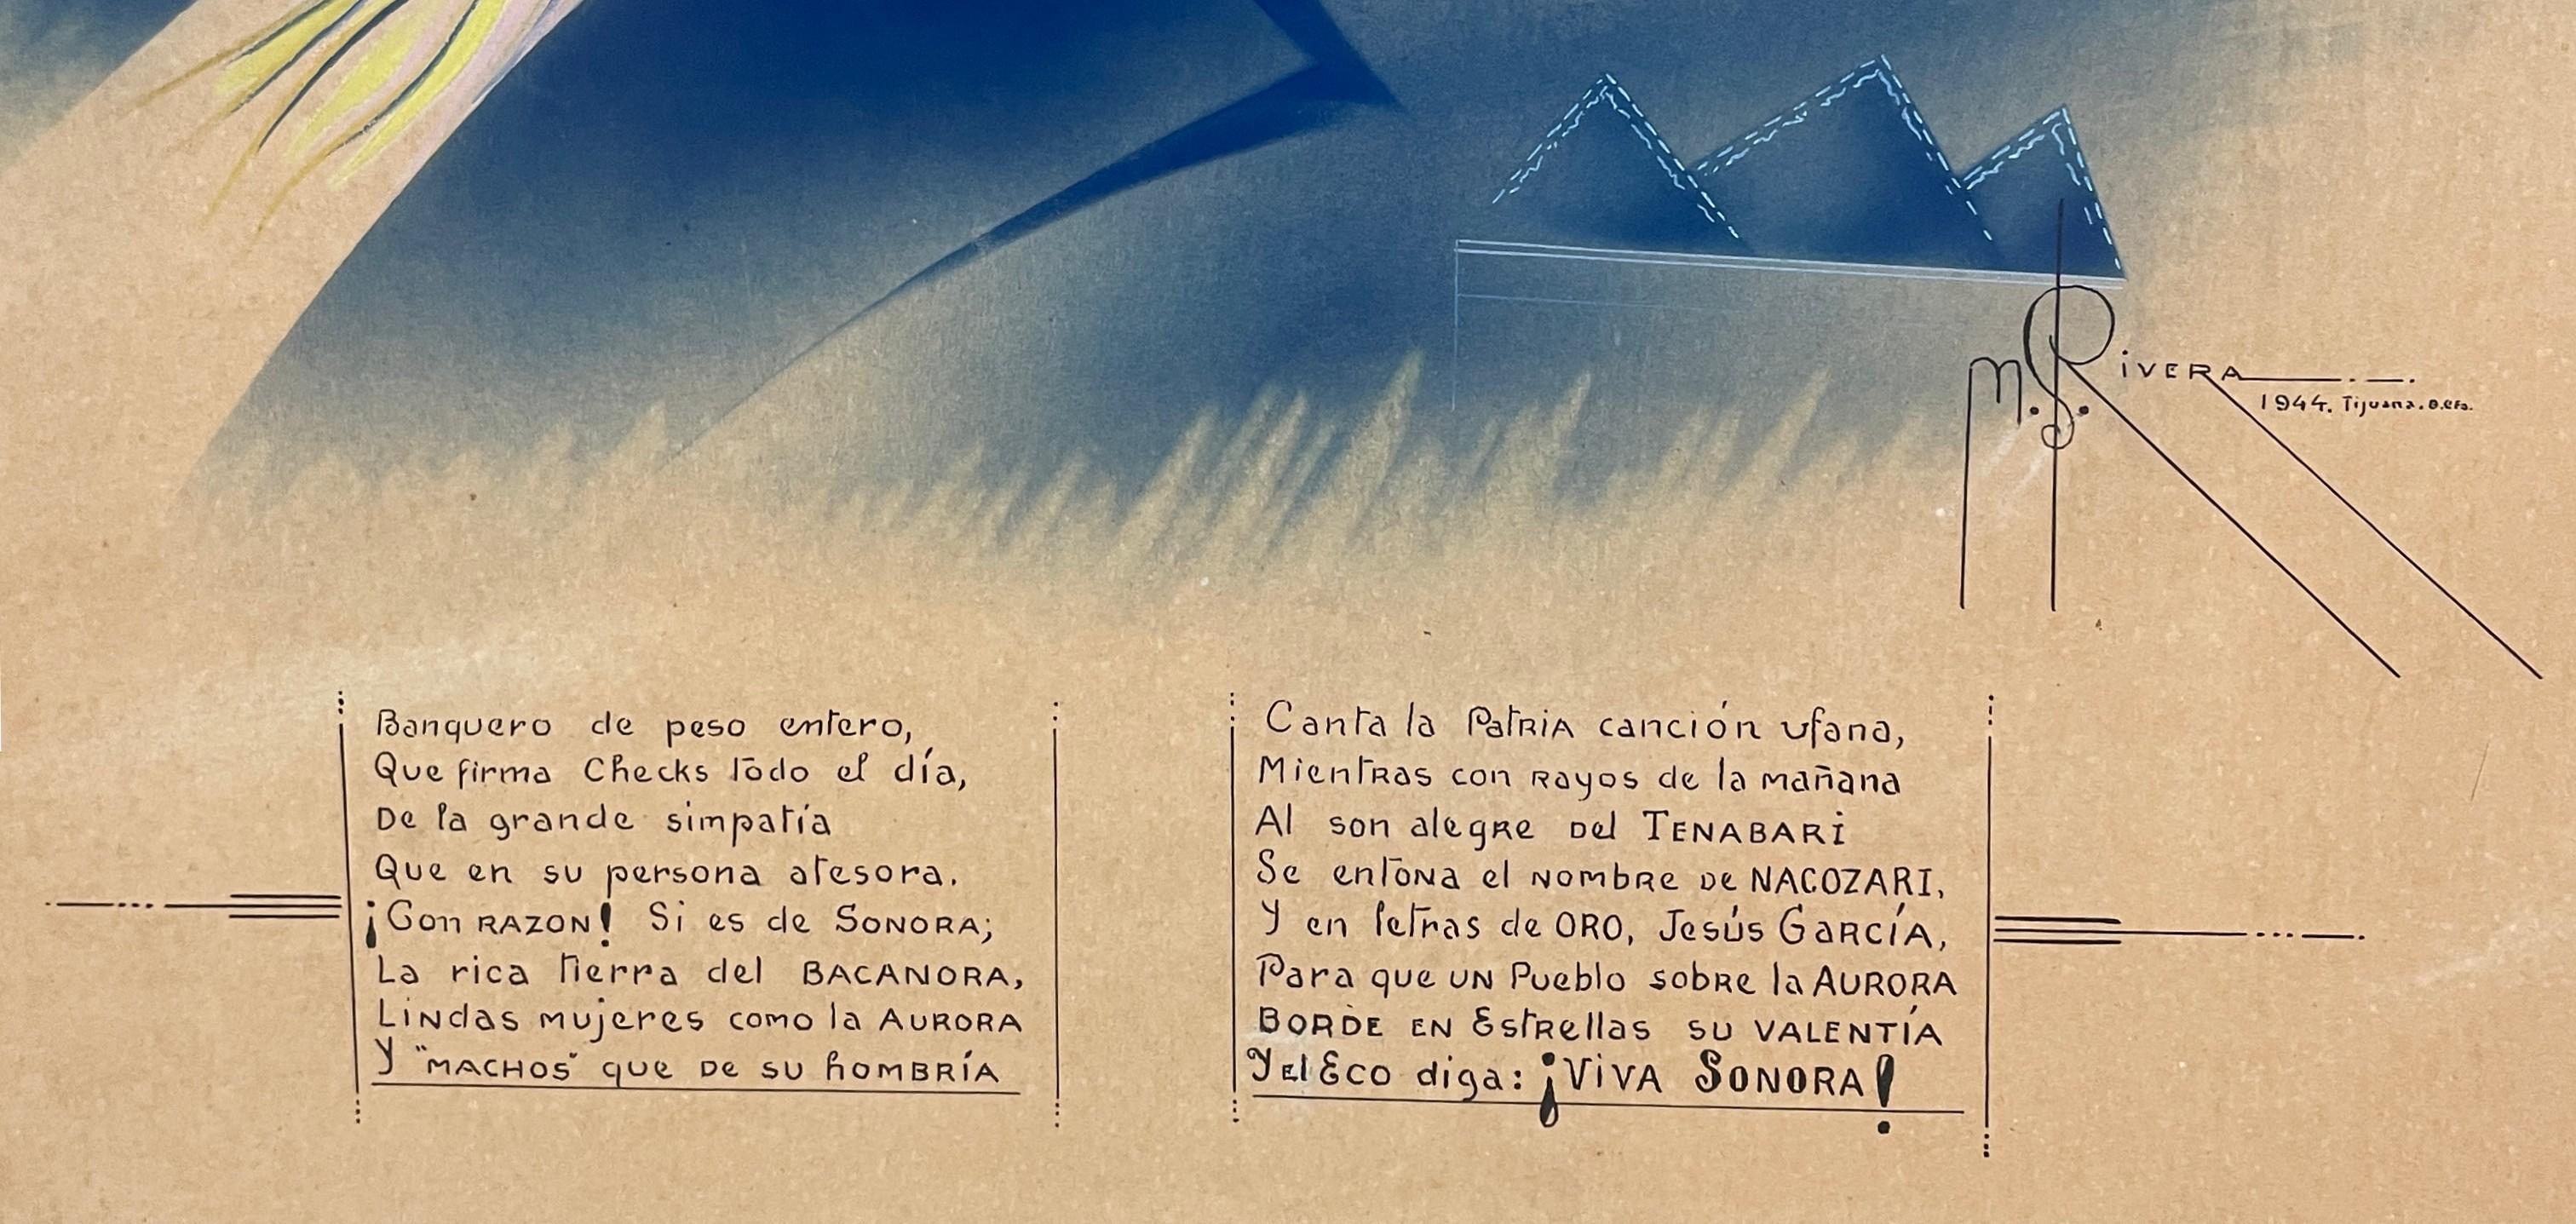 M.S. Rivera
1944. Tijuana. B. Cfa.
Banquero de peso entero,
Que firma Checks Todo el día,
De la grande simpatía
Que en su persona atesora.
¡Con RAZON! Si es de SONORA;
La rica Tierra del BACANORA,
LiNdas mujeres como la AURORA
Y "MACHOS" que DE SU hOMBRÍA
Canta la PatRiA canción ufana,
MientRas con Rayos de la mañana
Al son alegRe Del TENABARi
Se entoNa el NombRe De NACOZARI,
Y en letras de ORO, Jesús GaRCÍA,
Para que UN Pueblo sobRe la AURORA
BORDE EN EstRellas SU VALENTÍA
Y El Eco diga: ¡ViVA SONORA!